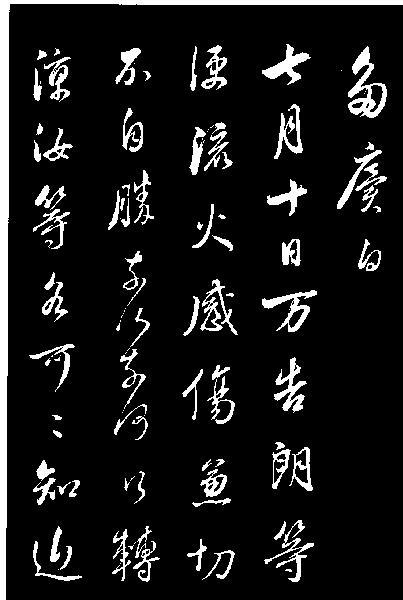 廙白
七月十日万告朗等
便流火感傷兼切
不自勝奈何奈何以轉
涼汝等各可〻知近